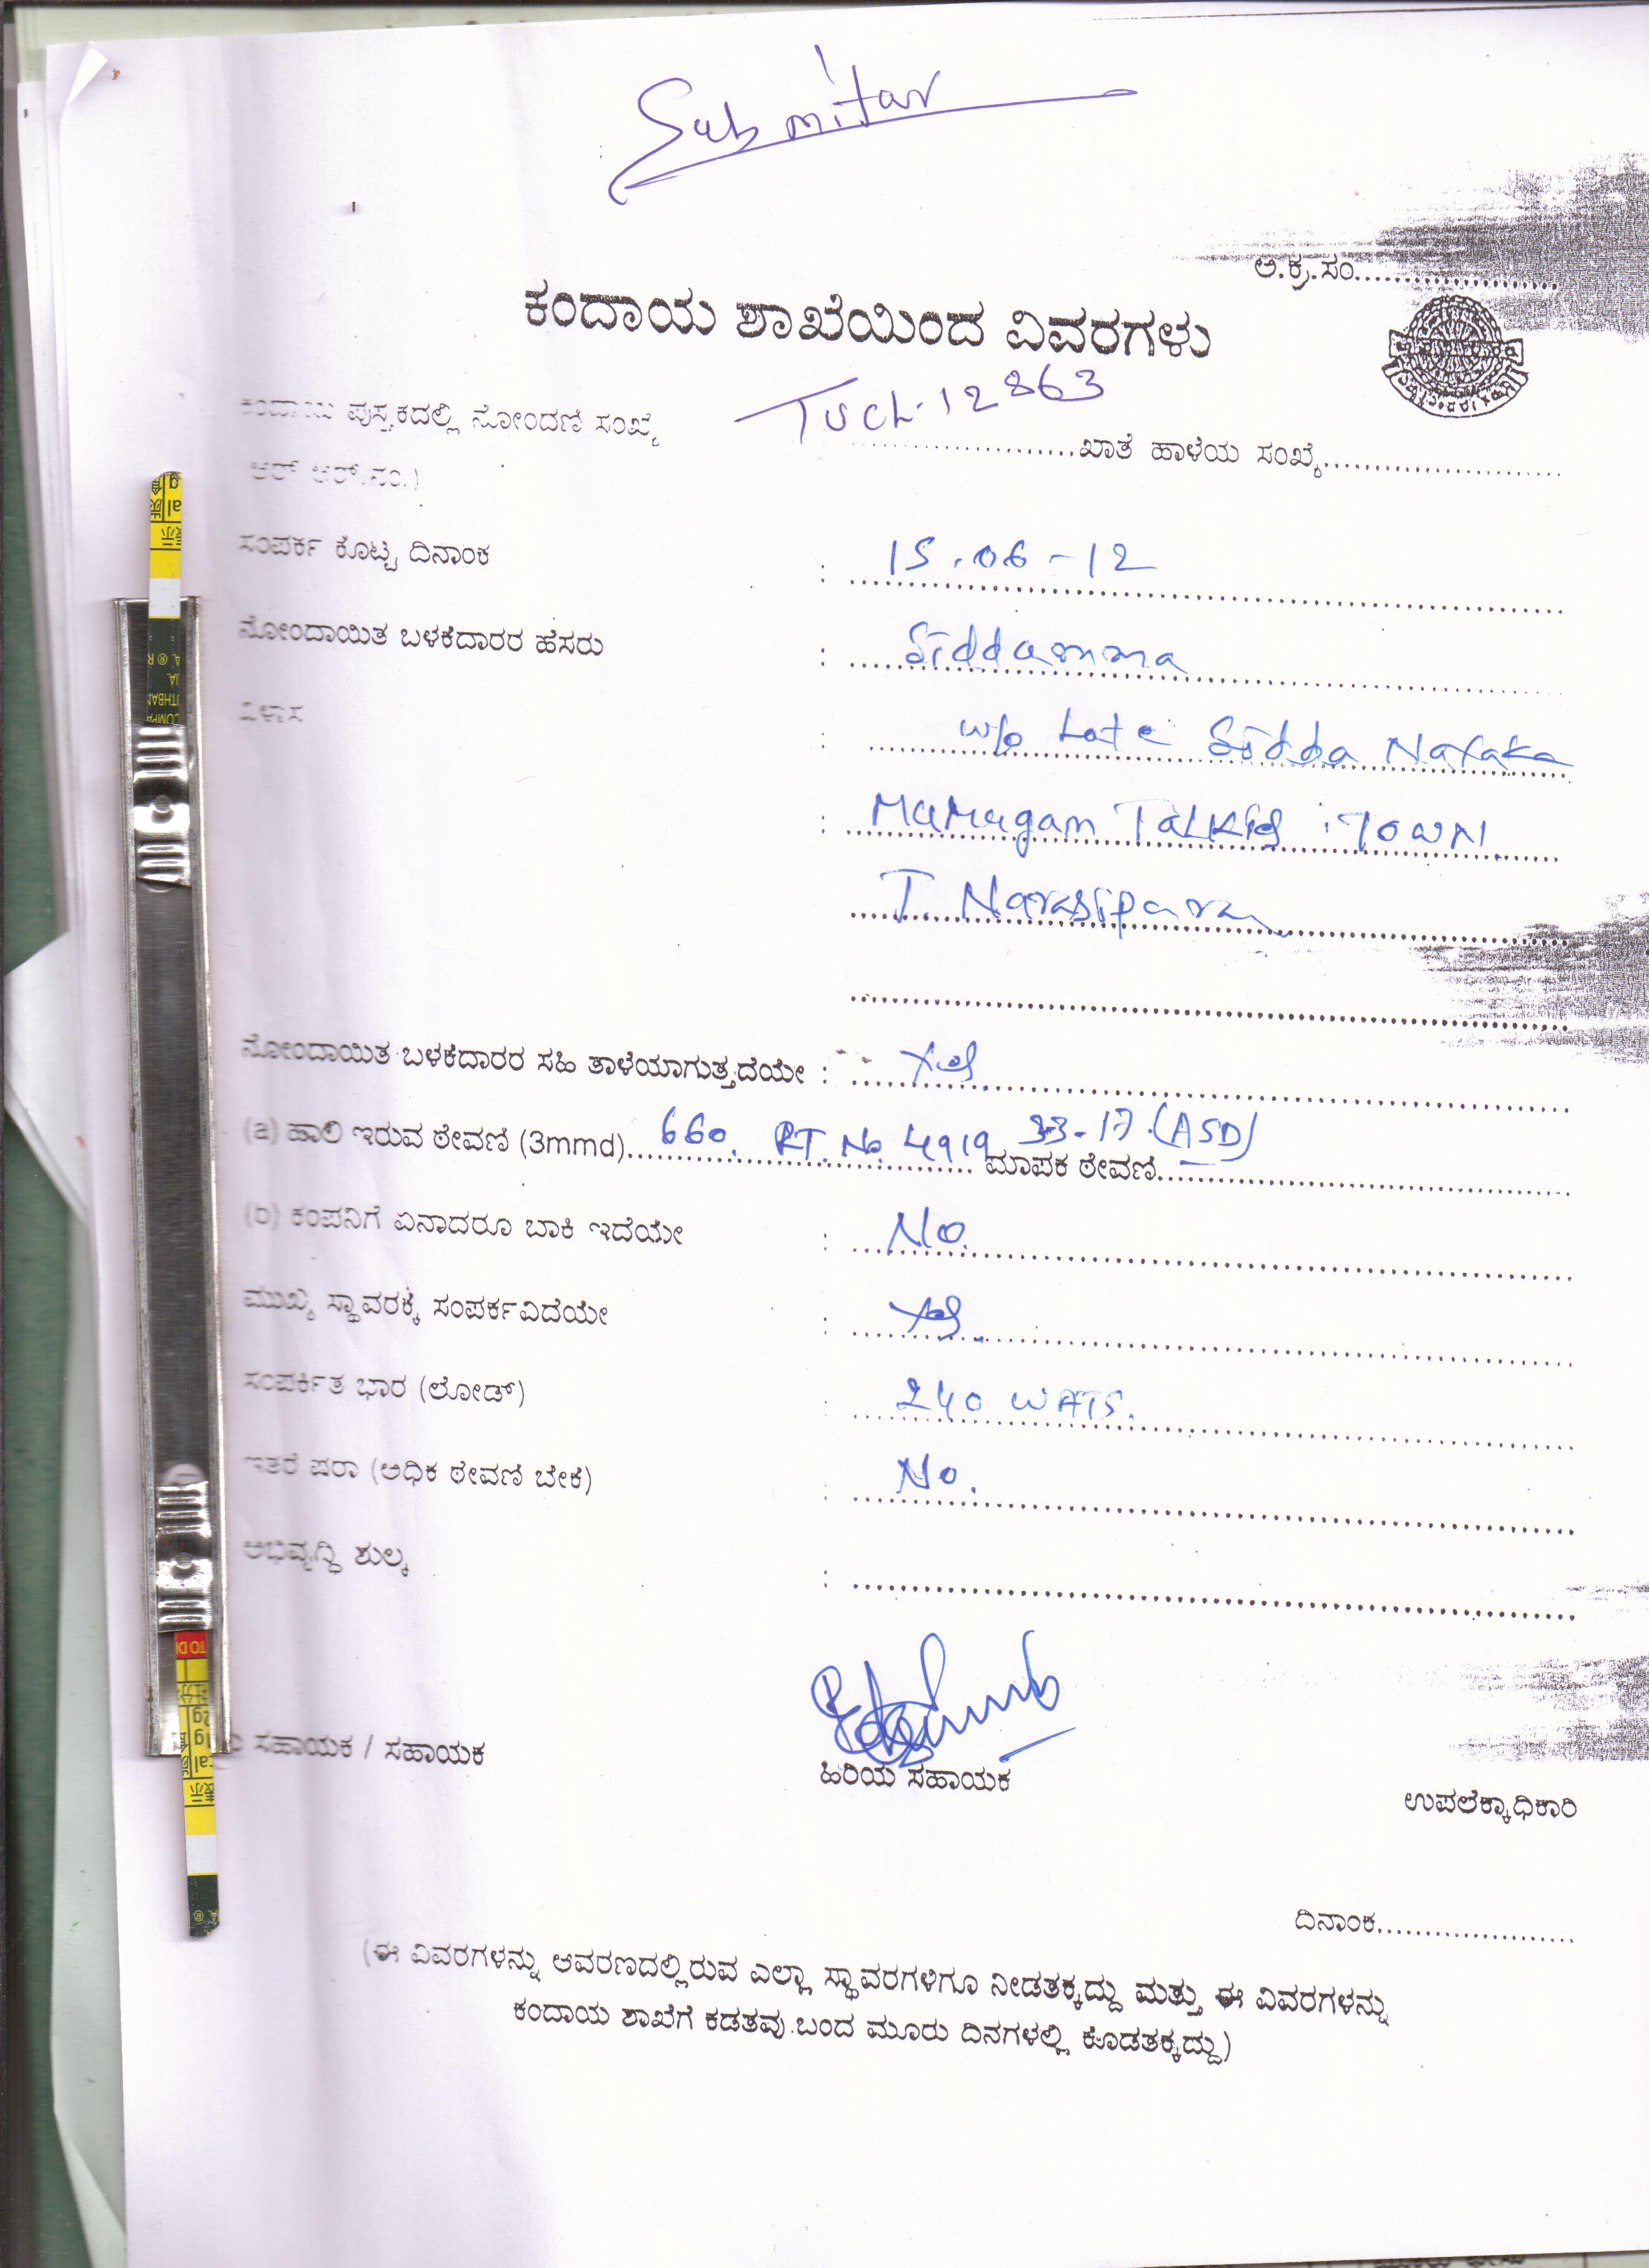 Submitar
ಅ.ಕ್ರ.ಸಂ.....................
ಕಂದಾಯ ಶಾಖೆಯಿಂದ ವಿವರಗಳು
ಕಂದಾಯ ಪುಸ್ತಕದಲ್ಲಿ ನೋಂದಣಿ ಸಂಖ್ಯೆ TUCL-12863 ಖಾತೆ ಹಾಳೆಯ ಸಂಖ್ಯೆ.....................
ಆರ್ ಆರ್.ನಂ.)
ಸಂಪರ್ಕ ಕೊಟ್ಟ ದಿನಾಂಕ : 15.06-12
ನೋಂದಾಯಿತ ಬಳಕೆದಾರರ ಹೆಸರು : Siddamma
ವಿಳಾಸ : w/o Late Sidda Nayaka
: Murugan Talkis TOWN
T. Narasipura
ನೋಂದಾಯಿತ ಬಳಕೆದಾರರ ಸಹಿ ತಾಳೆಯಾಗುತ್ತದೆಯೇ : Yes
(a) ಹಾಲಿ ಇರುವ ಠೇವಣಿ (3mmd) 660. RT. No. 4919 33-17.(ASD) ಮಾಪಕ ಠೇವಣಿ.....................
(b) ಕಂಪನಿಗೆ ಏನಾದರೂ ಬಾಕಿ ಇದೆಯೇ : No.
ಮುಖ್ಯ ಸ್ಥಾವರಕ್ಕೆ ಸಂಪರ್ಕವಿದೆಯೇ : Yes.
ಸಂಪರ್ಕಿತ ಭಾರ (ಲೋಡ್) : 240 WATS.
ಇತರೆ ಷರಾ (ಅಧಿಕ ಠೇವಣಿ ಬೇಕೆ) : No.
ಅಭಿವೃದ್ಧಿ ಶುಲ್ಕ :
ಸಹಾಯಕ / ಸಹಾಯಕ ಹಿರಿಯ ಸಹಾಯಕ ಉಪಲೆಕ್ಕಾಧಿಕಾರಿ
ದಿನಾಂಕ.....................
(ಈ ವಿವರಗಳನ್ನು ಆವರಣದಲ್ಲಿರುವ ಎಲ್ಲಾ ಸ್ಥಾವರಗಳಿಗೂ ನೀಡತಕ್ಕದ್ದು ಮತ್ತು ಈ ವಿವರಗಳನ್ನು
ಕಂದಾಯ ಶಾಖೆಗೆ ಕಡತವು ಬಂದ ಮೂರು ದಿನಗಳಲ್ಲಿ ಕೊಡತಕ್ಕದ್ದು)